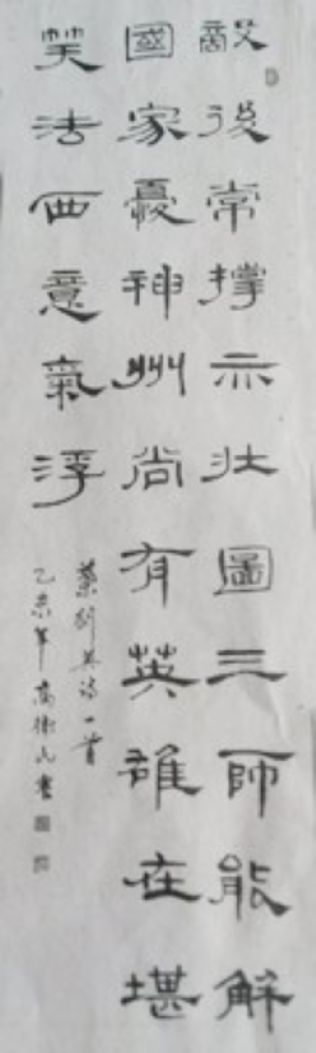 敵後常撑亦壯圖三師能解
國家憂神州尚有英雄在堪
笑法西意氣浮
葉剑英诗一首
乙未年高衛民書